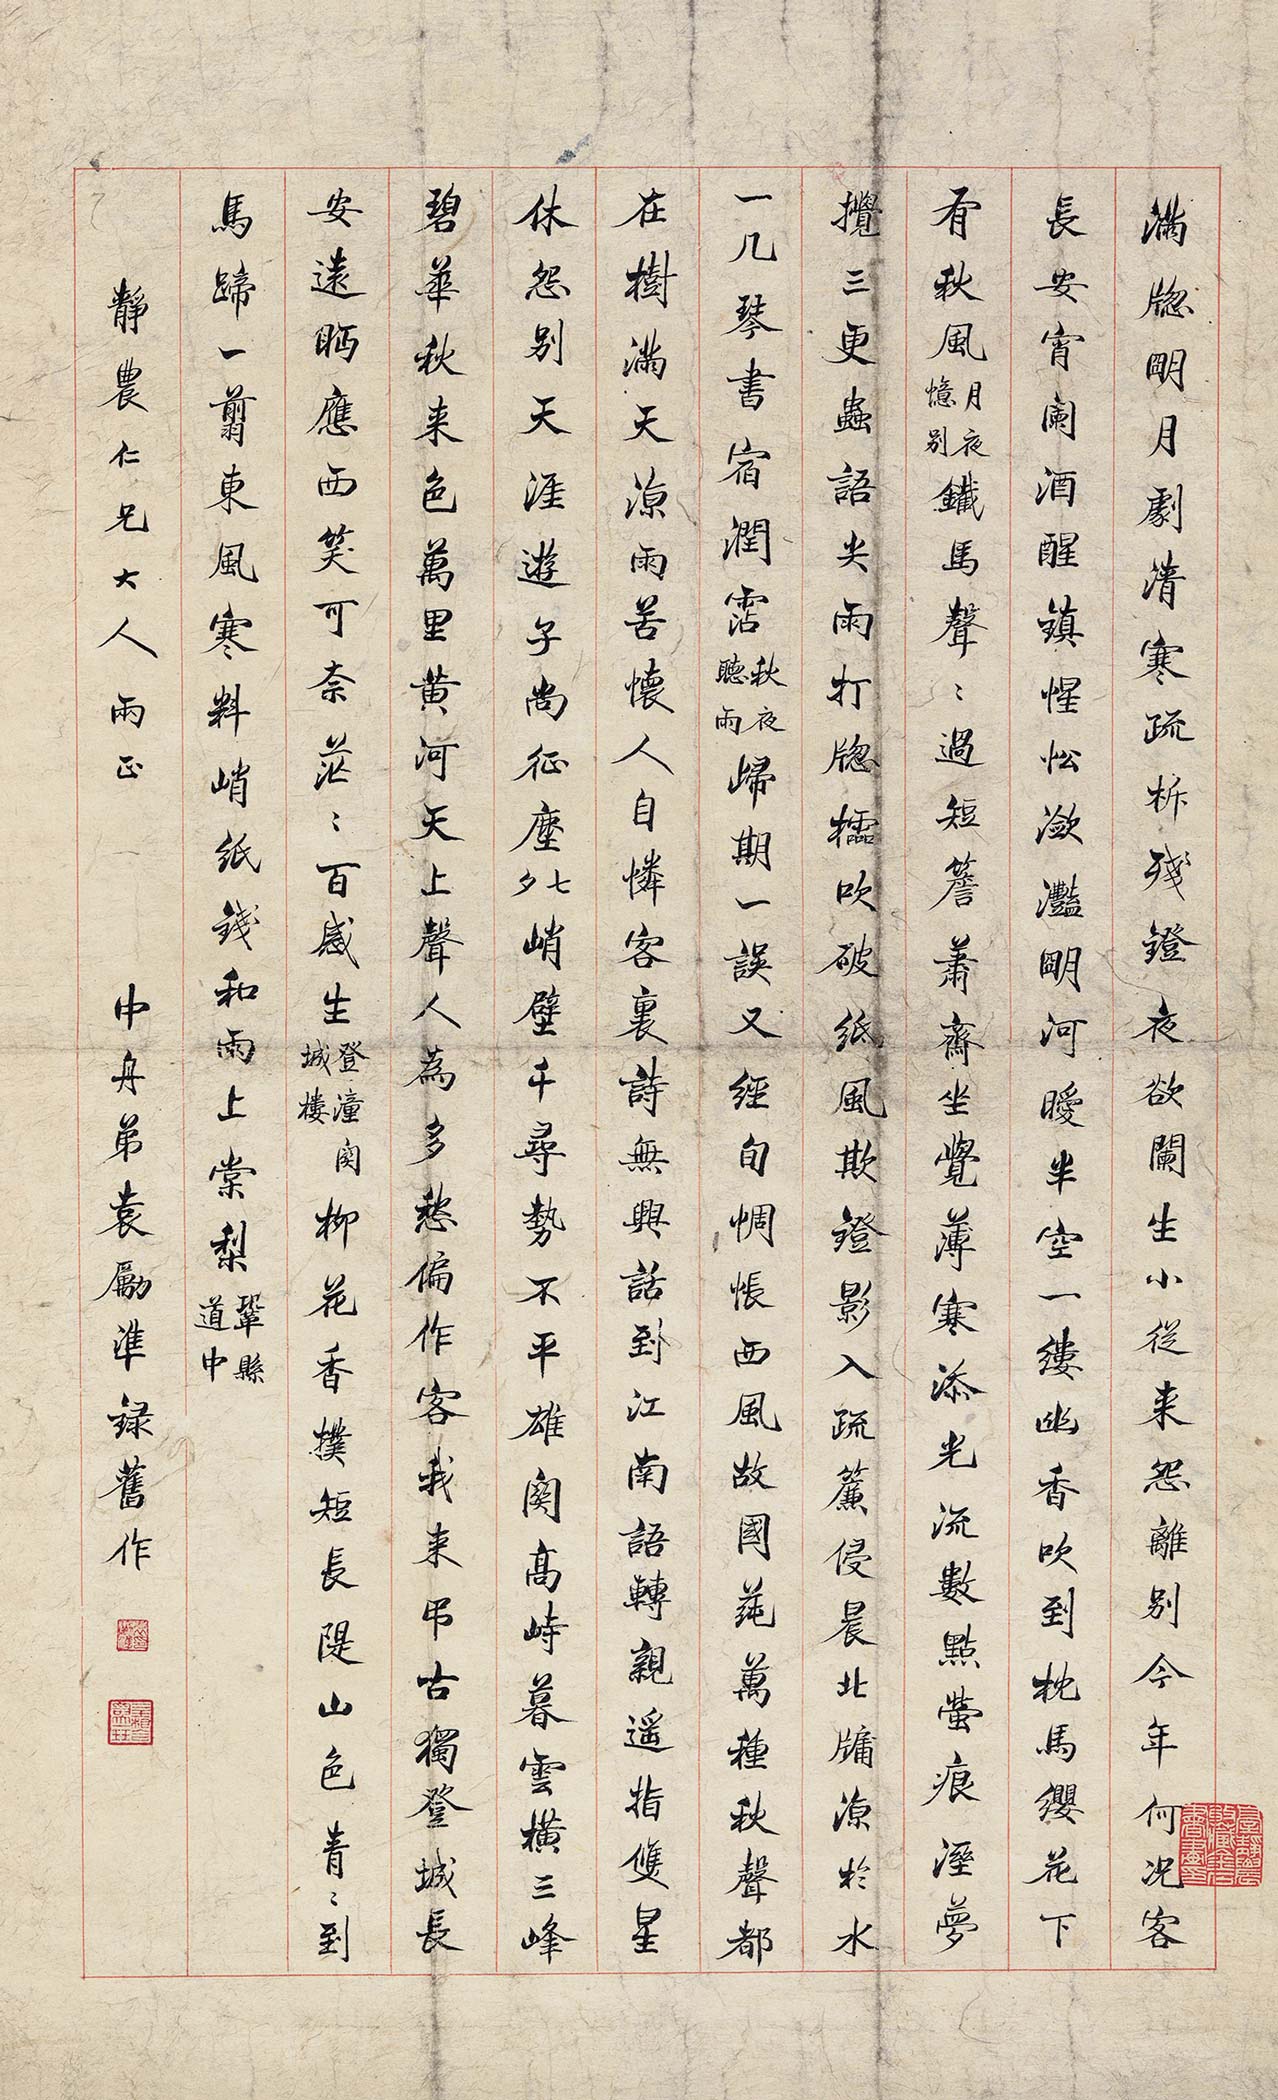 滿牕明月劇清寒疏柝殘鐙夜欲闌生小從来怨離別今年何况客
長安宵闌酒醒鎮惺忪瀲灩明河曖半空一縷幽香吹到枕馬纓花下
有秋風月夜憶别鐵馬聲〻過短簷蕭齋坐覺薄寒添光流數點螢痕溼夢
攪三更蟲語尖雨打牕櫺吹破紙風欺鐙影入疏簾侵晨北牖涼於水
一几琴書宿潤霑秋夜聽雨歸期一誤又經旬惆悵西風故國蒓萬種秋聲都
在樹滿天涼雨苦懷人自憐客裏詩無興話到江南語轉親遥指雙星
休怨别天涯遊子尚征塵七夕峭壁千尋勢不平雄関髙峙暮雲橫三峰
碧華秋来色萬里黄河天上聲人為多愁偏作客我来弔古獨登城長
安遠眄應西笑可奈茫〻百感生登潼関城樓柳花香撲短長隄山色青〻到
馬蹄一翦東風寒料峭紙錢和雨上棠梨鞏縣道中
靜農仁兄大人 兩正 中舟弟袁勵準録舊作